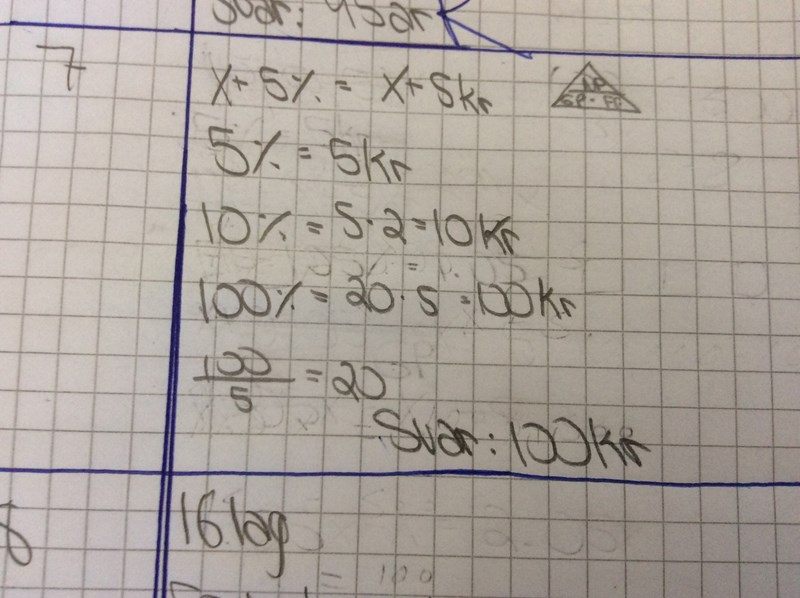 Svar: 45ar
7
x+ 5% = x+ 5kr
5% = 5kr
10% = 5·2=10kr
100% = 20·5=100kr
100/5 = 20
Svar: 100kr
8
16 lag
= 100